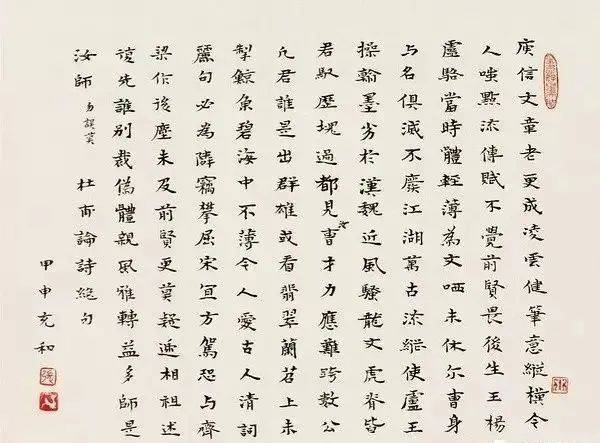 庾信文章老更成凌雲健筆意縱橫今
人嗤點流傳賦不覺前賢畏後生王楊
盧駱當時體輕薄為文哂未休尔曹身
与名俱滅不廢江湖萬古流縱使盧王
操翰墨劣於漢魏近風騷龍文虎脊皆
君馭歷塊過都見曹才力應難跨數公
凡君誰是出群雄或看翡翠蘭苕上未
掣鯨魚碧海中不薄今人愛古人清詞
麗句必為鄰竊攀屈宋宜方駕恐与齊
梁作後塵未及前賢更莫疑遞相祖述
復先誰別裁偽體親風雅轉益多師是
汝師 杜甫論詩絕句
甲申充和